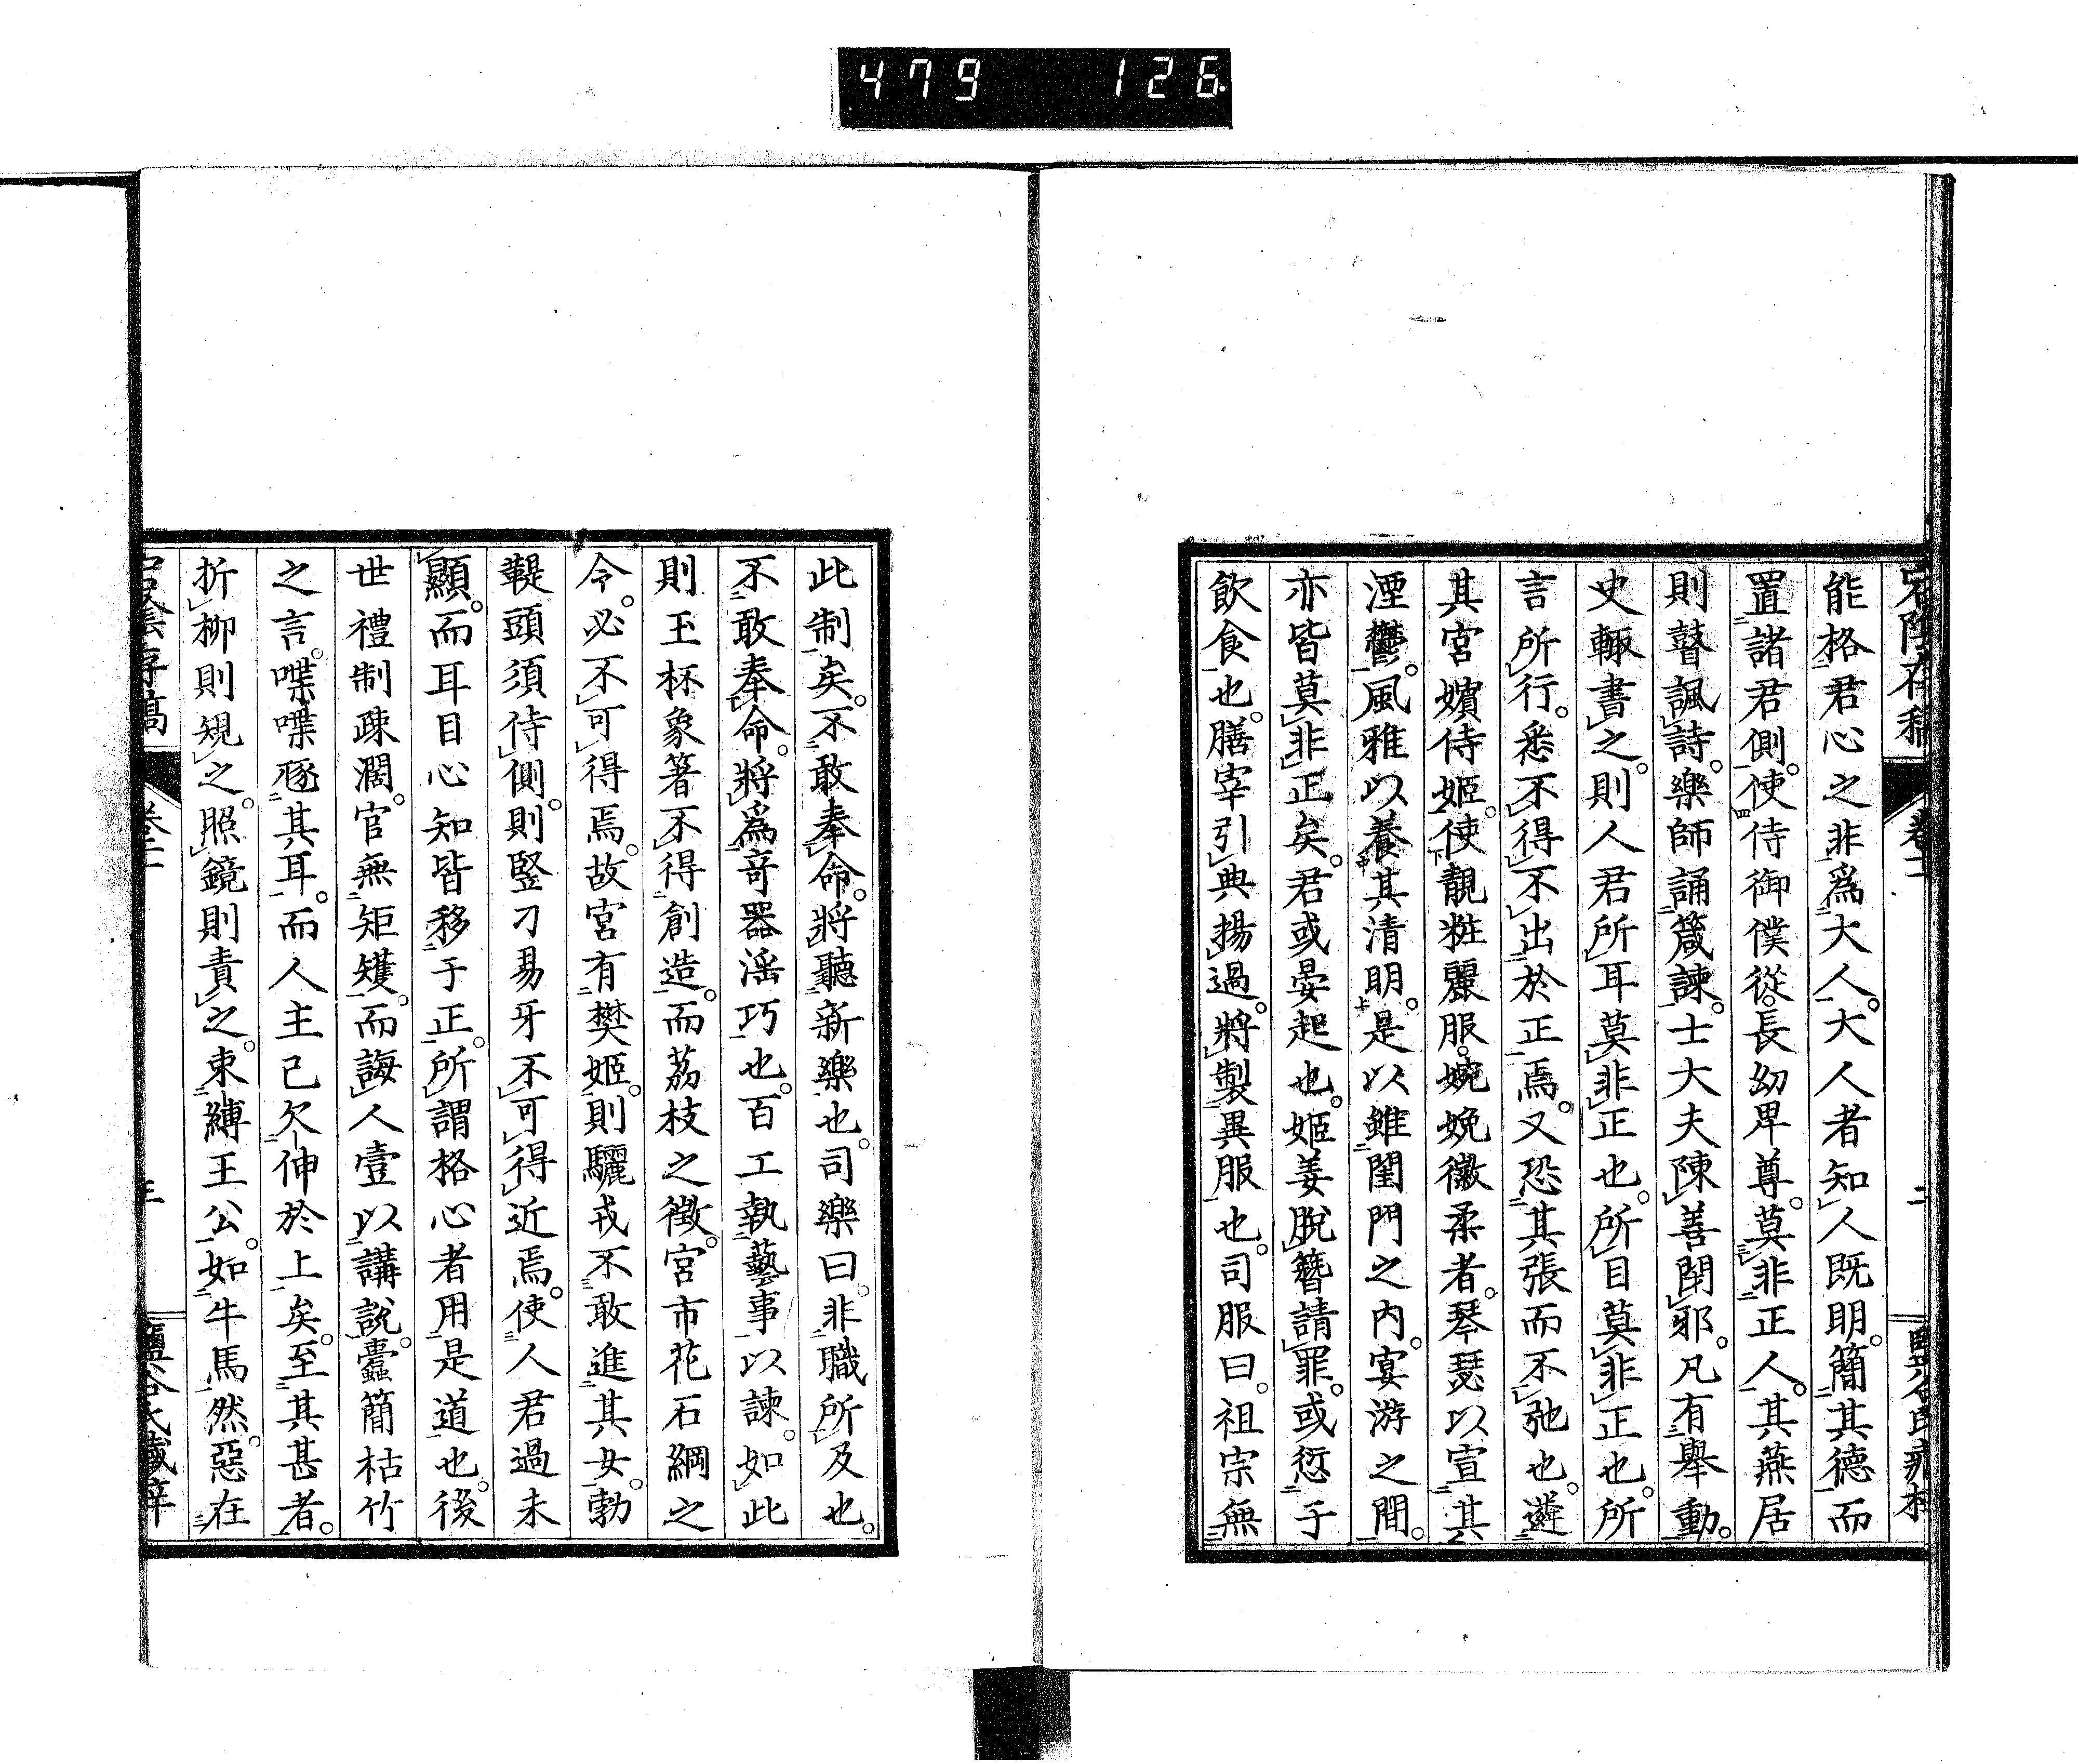 479 126
能格君心之非爲大人。大人者知人既明。簡其德而
置諸君側。使侍御僕從。長幼卑尊。莫非正人。其燕居
則瞽諷詩。樂師誦箴諫。士大夫陳善閉邪。凡有舉動。
史輙書之。則人君所耳莫非正也。所目莫非正也。所
言所行。悉不得不出於正焉。又恐其張而不弛也。遴
其宮嬪侍姬。使靚粧麗服。婉娩徽柔者。琴瑟以宣其
湮鬱。風雅以養其清明。是以雖閨門之內。宴游之間。
亦皆莫非正矣。君或晏起也。姬姜脫簪請罪。或愆于
飲食也。膳宰引典揚過。將製異服也。司服曰。祖宗無
此制矣。不敢奉命。將聽新樂也。司樂曰。非職所及也。
不敢奉命。將爲奇器淫巧也。百工執藝事以諫。如此
則玉杯象箸不得創造。而茘枝之徵。宮市花石綱之
令。必不可得焉。故宮有樊姬。則驪戎不敢進其女。勃
鞮頭須侍側。則竪刁易牙不可得近焉。使人君過未
顯。而耳目心知皆移于正。所謂格心者用是道也。後
世禮制疎濶。官無矩矱。而誨人壹以講說。蠹簡枯竹
之言。喋喋聒其耳。而人主已欠伸於上矣。至其甚者。
折柳則規之。照鏡則責之。束縛王公。如牛馬然。惡在
三